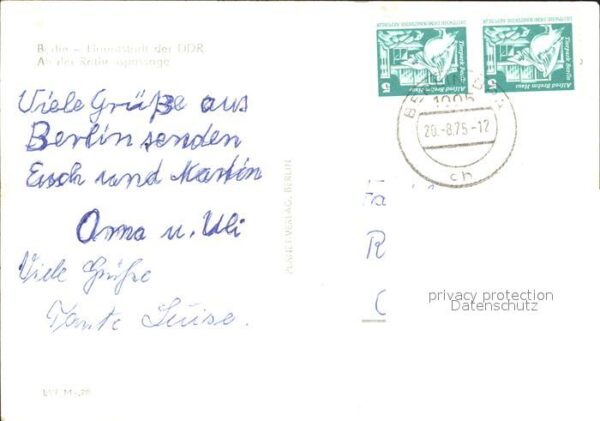 Berlin – Hauptstadt der DDR
An der Rathauspassage
Viele Grüße aus
Berlin senden
Euch und Martin
Oma u. Uli
Viele Grüße
Tante Luise.
PLANET-VERLAG, BERLIN
DEUTSCHE DEMOKRATISCHE REPUBLIK
Tierpark Berlin
Alfred Brehm Haus
5
DEUTSCHE DEMOKRATISCHE REPUBLIK
Tierpark Berlin
Alfred Brehm Haus
5
20.-8.75-12
ch
Fa
R
privacy protection
Datenschutz